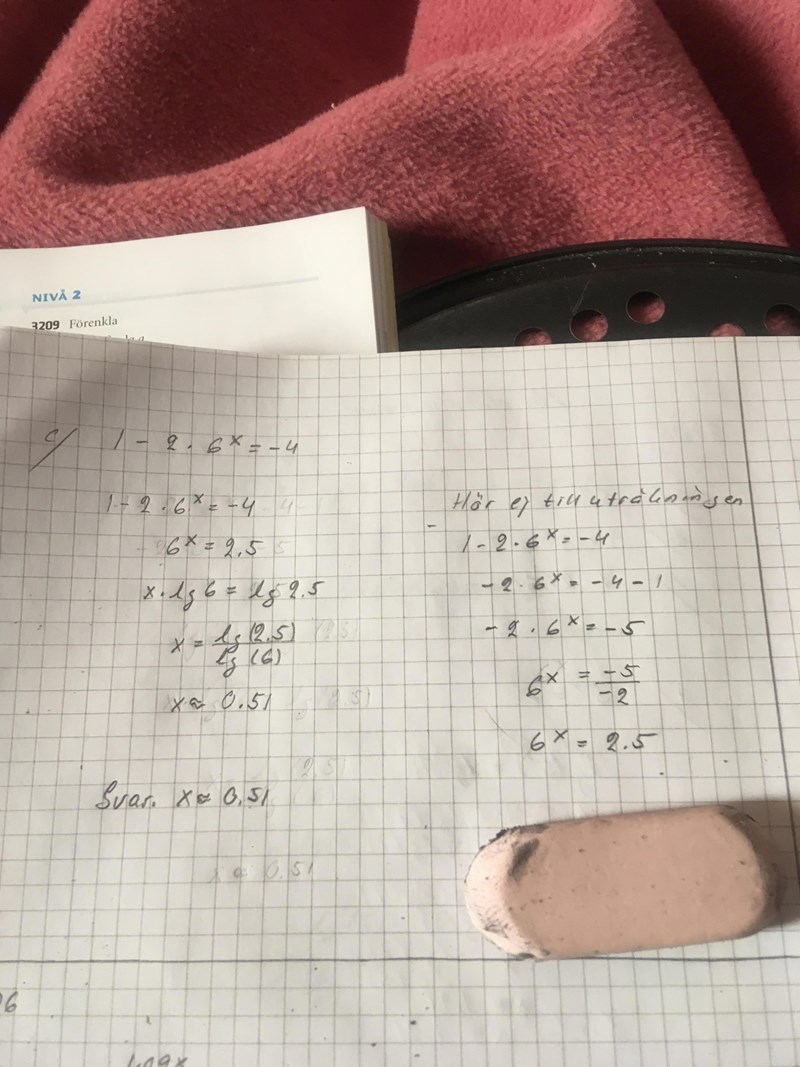 NIVÅ 2
3209 Förenkla
c/ 1 - 2 · 6^x = -4
1 - 2 · 6^x = -4
6^x = 2.5
x · lg 6 = lg 2.5
x = lg (2.5) / lg (6)
x ≈ 0.51
Svar. x ≈ 0.51
Hör ej till uträkningen
1 - 2 · 6^x = -4
-2 · 6^x = -4 - 1
-2 · 6^x = -5
6^x = -5 / -2
6^x = 2.5
x ≈ 0.51